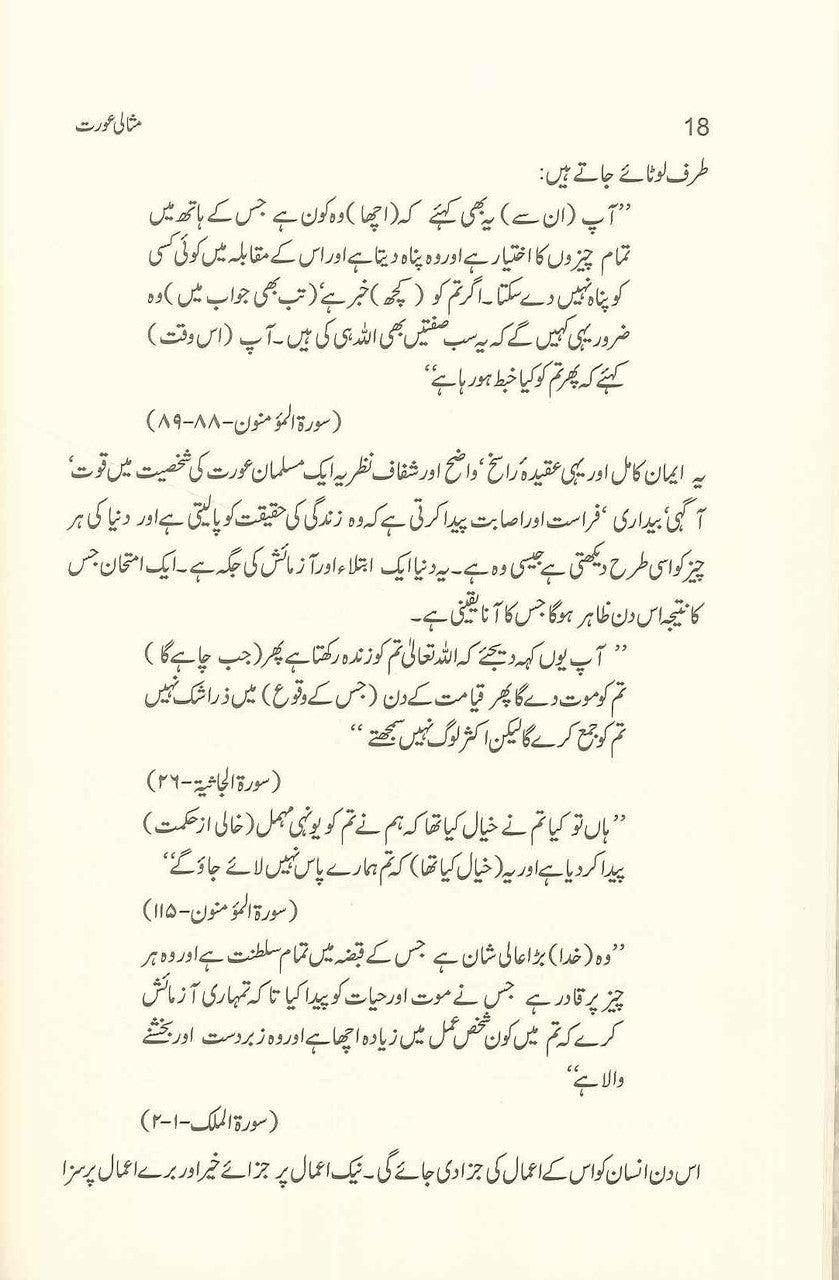 18
مثالی عورت
طرف لوٹائے جاتے ہیں:
’’آپ (ان سے) یہ بھی کہئے کہ (اچھا) وہ کون ہے جس کے ہاتھ میں
تمام چیزوں کا اختیار ہے اور وہ پناہ دیتا ہے اور اس کے مقابلہ میں کوئی کسی
کو پناہ نہیں دے سکتا۔ اگر تم کو (کچھ) خبر ہے‘ (تب بھی جواب میں) وہ
ضرور یہی کہیں گے کہ یہ سب صفتیں بھی اللہ ہی کی ہیں۔ آپ (اس وقت)
کہئے کہ پھر تم کو کیا خبط ہو رہا ہے‘‘
(سورۃ المؤمنون-۸۸-۸۹)
یہ ایمان کامل اور یہی عقیدۂ راسخ‘ واضح اور شفاف نظریہ ایک مسلمان عورت کی شخصیت میں قوت‘
آگہی‘ بیداری‘ فراست اور اصابت پیدا کرتی ہے کہ وہ زندگی کی حقیقت کو پالیتی ہے اور دنیا کی ہر
چیز کو اسی طرح دیکھتی ہے جیسی وہ ہے۔ یہ دنیا ایک ابتلاء اور آزمائش کی جگہ ہے۔ ایک امتحان جس
کا نتیجہ اس دن ظاہر ہوگا جس کا آنا یقینی ہے۔
’’آپ یوں کہہ دیجئے کہ اللہ تعالیٰ تم کو زندہ رکھتا ہے پھر (جب چاہے گا)
تم کو موت دے گا پھر قیامت کے دن (جس کے وقوع) میں ذرا شک نہیں
تم کو جمع کرے گا لیکن اکثر لوگ نہیں سمجھتے‘‘
(سورۃ الجاثیۃ-۲۶)
’’ہاں تو کیا تم نے خیال کیا تھا کہ ہم نے تم کو یونہی مہمل (خالی از حکمت)
پیدا کر دیا ہے اور یہ (خیال کیا تھا) کہ تم ہمارے پاس نہیں لائے جاؤ گے‘‘
(سورۃ المؤمنون-۱۱۵)
’’وہ (خدا) بڑا عالی شان ہے جس کے قبضہ میں تمام سلطنت ہے اور وہ ہر
چیز پر قادر ہے جس نے موت اور حیات کو پیدا کیا تا کہ تمہاری آزمائش
کرے کہ تم میں کون شخص عمل میں زیادہ اچھا ہے اور وہ زبردست اور بخشنے
والا ہے‘‘
(سورۃ الملک-۱-۲)
اس دن انسان کو اس کے اعمال کی جزا دی جائے گی۔ نیک اعمال پر جزائے خیر اور برے اعمال پر سزا